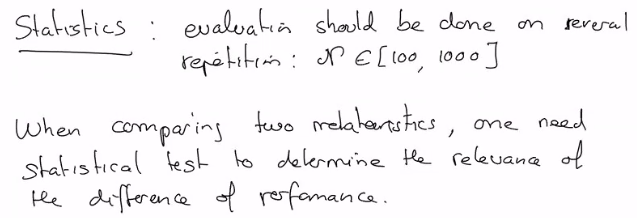 Statistics : evaluation should be done on several
repetition : N ∈ [100, 1000]
When comparing two metaheuristics, one need
statistical test to determine the relevance of
the difference of performance.